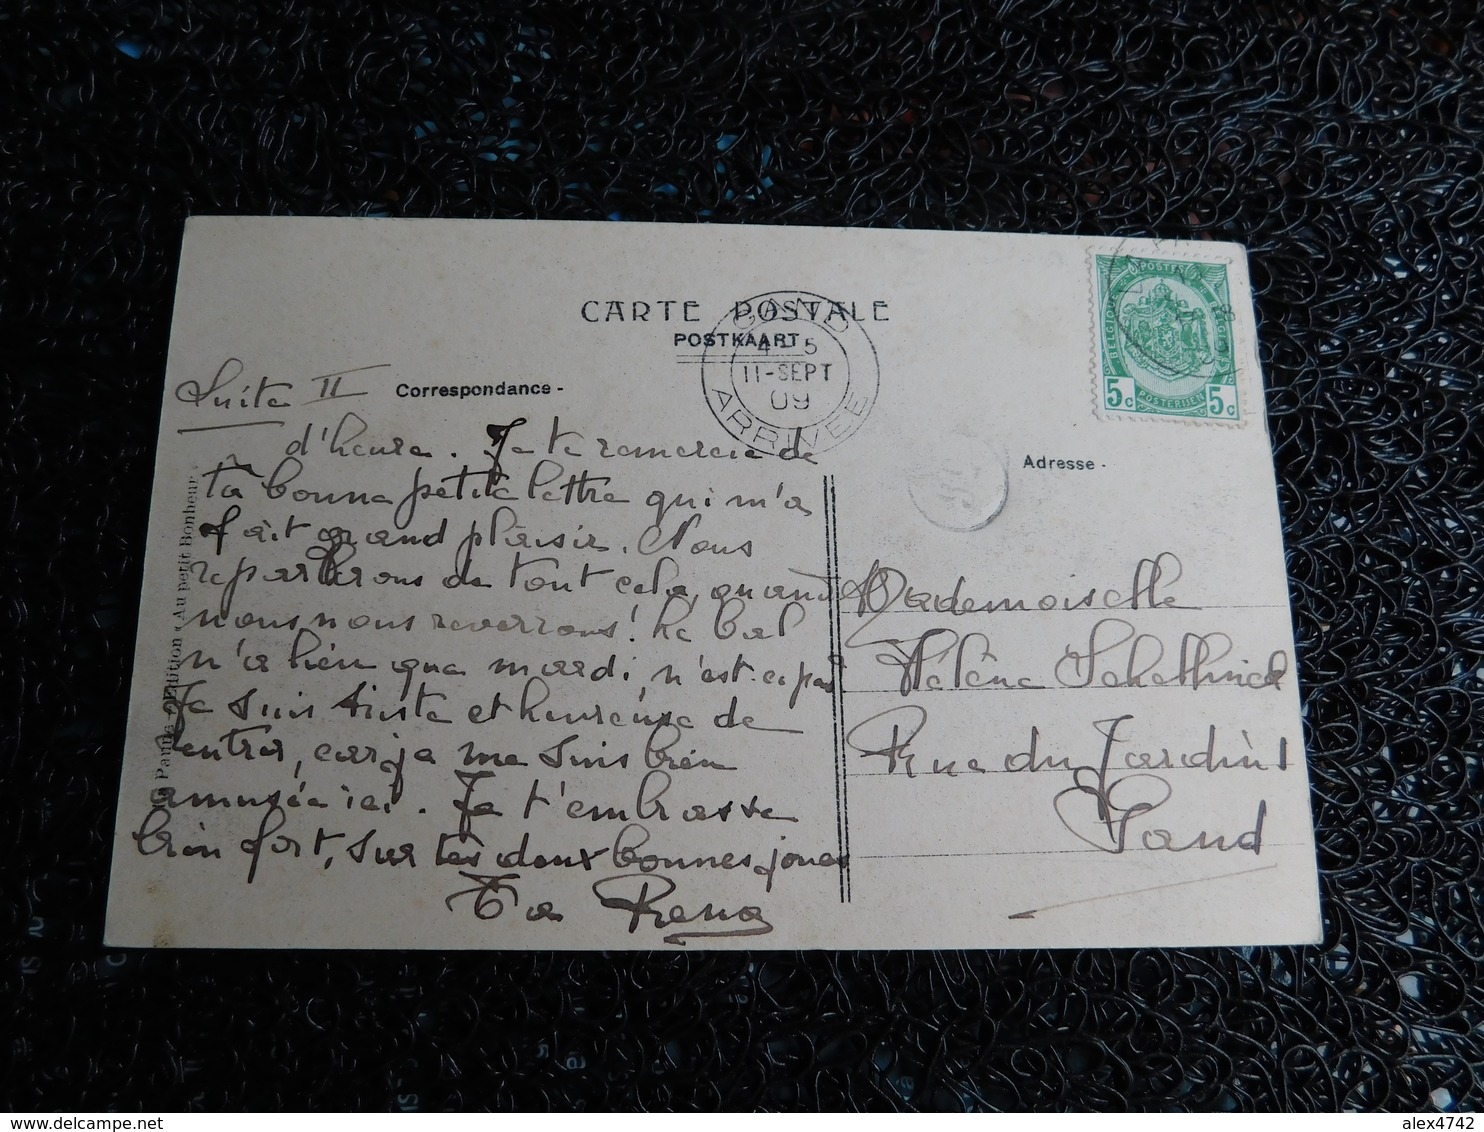 CARTE POSTALE
POSTKAART
GAND
4-5
11-SEPT
09
ARRIVÉE
POSTEN
BELGIQUE
BELGIE
5c 5c
POSTERIJEN
Suite II
Correspondance -
d'heure. Je te remercie de
ta bonne petite lettre qui m'a
fait grand plaisir. Nous
reparlerons de tout cela, quand
nous nous reverrons! Le bal
n'a lieu que mardi, n'est-ce pas
Je suis triste et heureuse de
rentrer, car je me suis bien
amusée ici. Je t'embrasse
bien fort, sur tes deux bonnes joues
Ta
La Panne - Edition « Au petit Bonheur »
Adresse -
Mademoiselle
Hélène
Rue du Jardin
Gand
alex4742